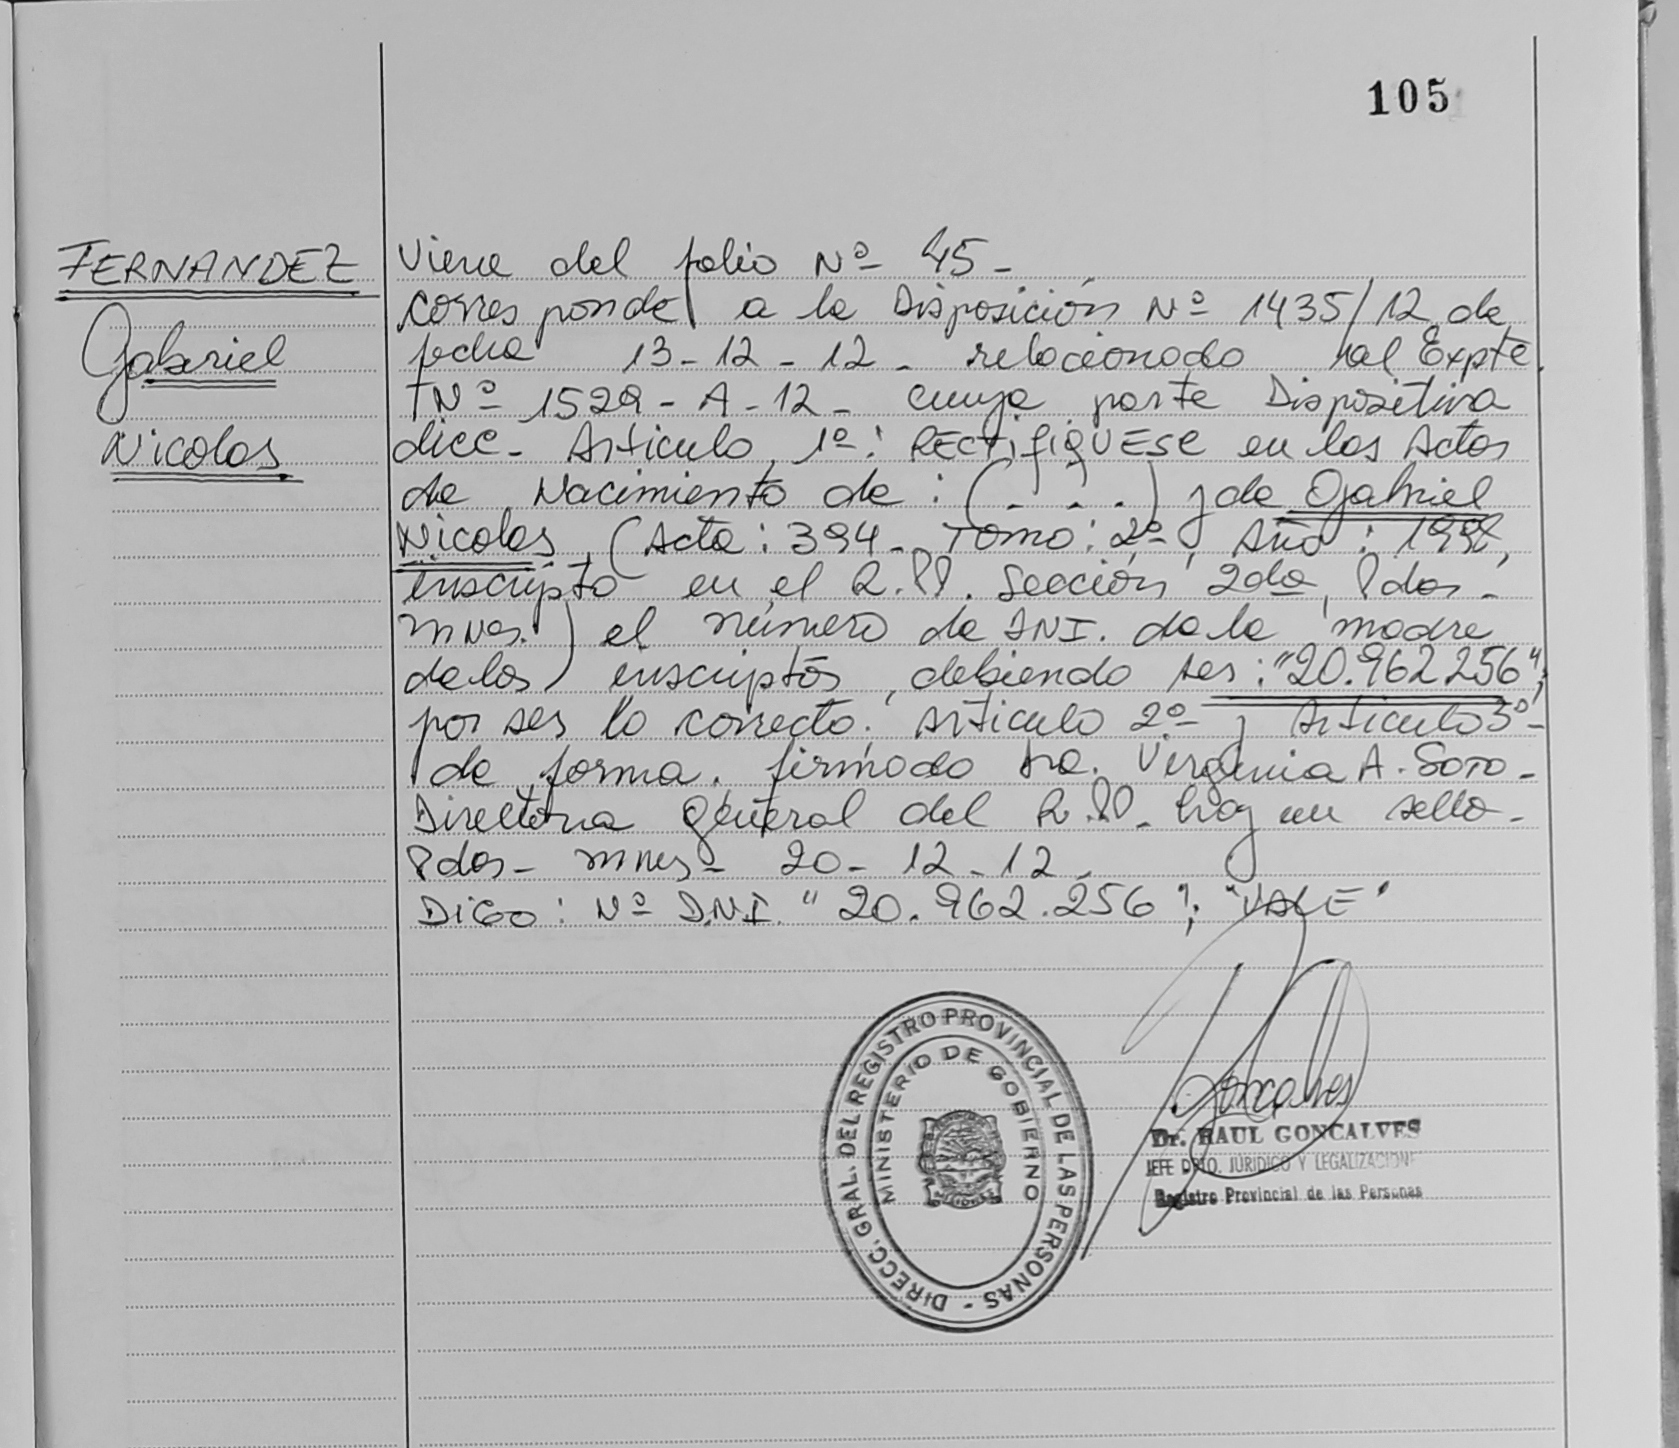 105
FERNANDEZ
Gabriel
Nicolas
Viene del folio Nº 45-
corresponde a la Disposición Nº 1435/12 de
fecha 13-12-12- relacionado al Expte.
Nº 1529-A-12- cuya parte Dispositiva
dice- Articulo 1º: RECTIFIQUESE en las Actas
de Nacimiento de: (...) y de Gabriel
Nicolas, (Acta: 394- Tomo: 2º, Año:
inscripto en el R.PP. Sección 2da, Pdas-
mnes.) el número de DNI. de la madre
de los inscriptos, debiendo ser: "20.962256",
por ser lo correcto. Articulo 2º y Articulo 3º-
de forma. firmado Dra. Virginia A. SOTO-
Directora general del R.PP. hay un sello-
Pdas- mnes- 20-12-12-
DIGO: Nº DNI. "20.962.256"; "VALE"
DIRECC. GRAL. DEL REGISTRO PROVINCIAL DE LAS PERSONAS -
MINISTERIO DE GOBIERNO
Goncalves
Dr. RAUL GONCALVES
JEFE DPTO. JURIDICO Y LEGALIZACIONE
Registro Provincial de las Personas